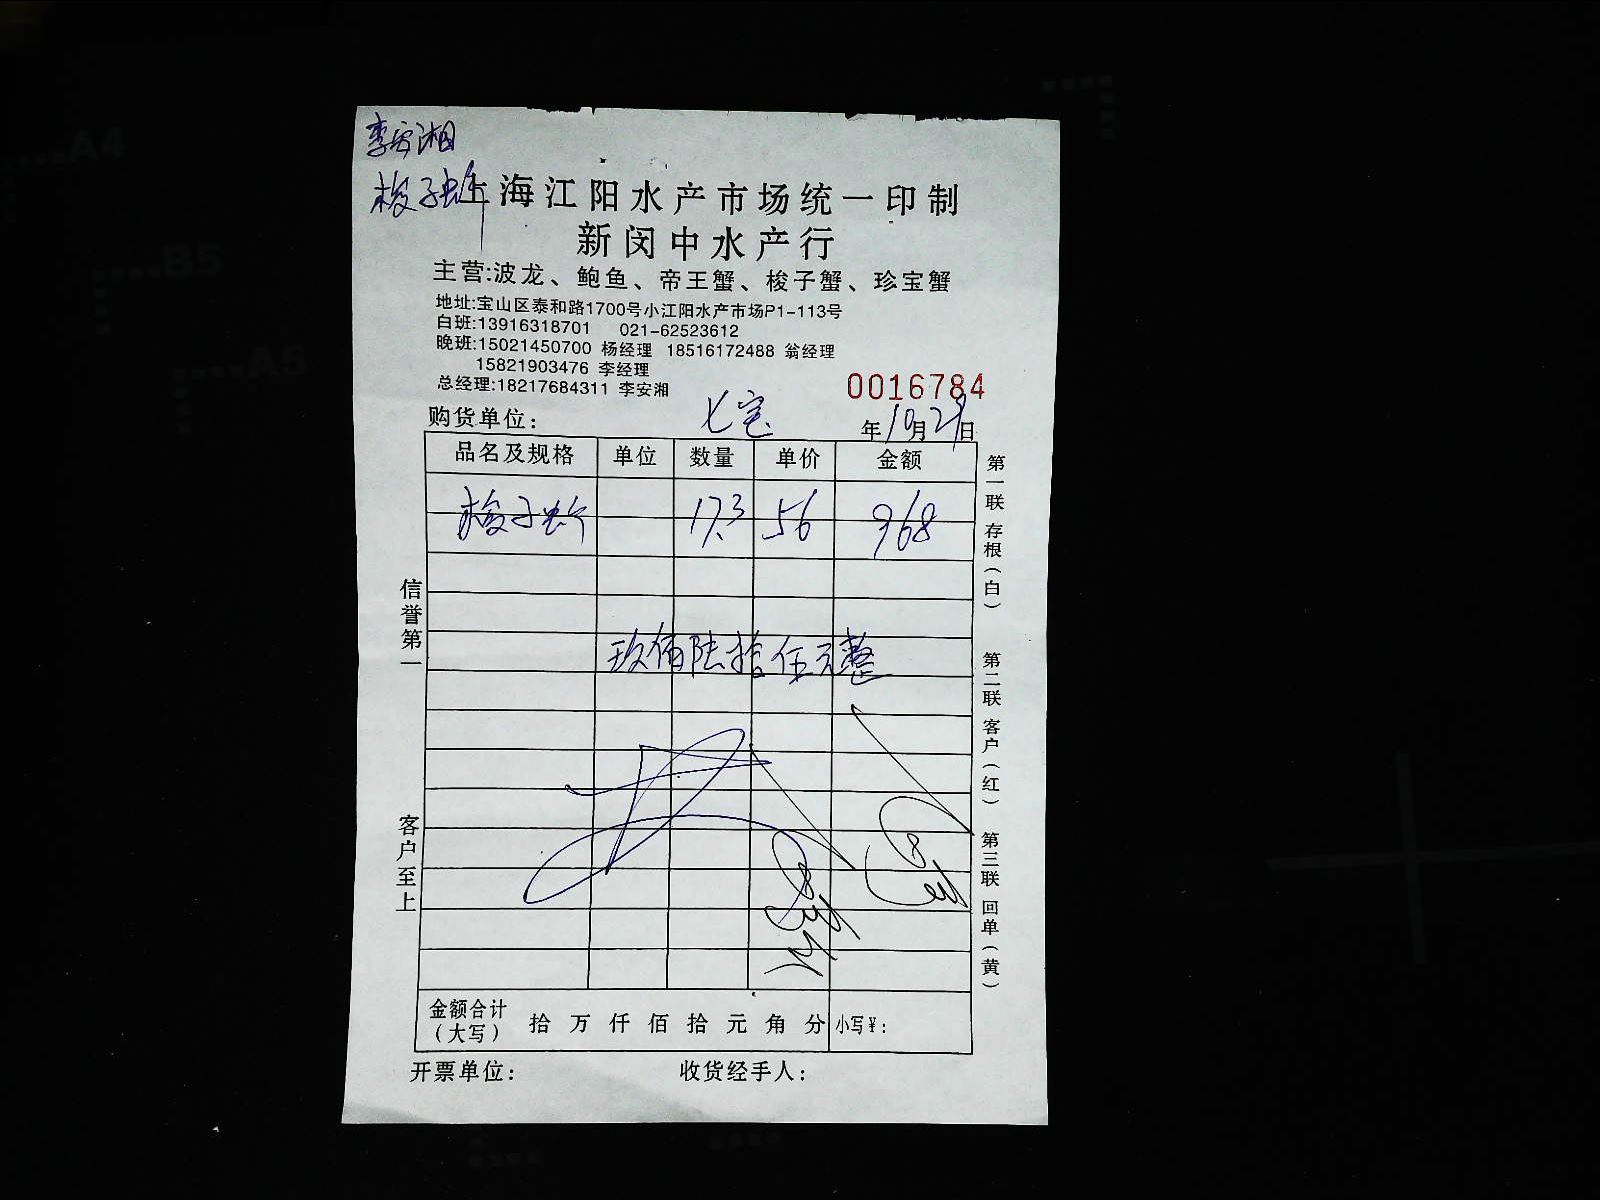 李安湘
梭子虾
上海江阳水产市场统一印制
新闵中水产行
主营:波龙、鲍鱼、帝王蟹、梭子蟹、珍宝蟹
地址:宝山区泰和路1700号小江阳水产市场P1-113号
白班:13916318701 021-62523612
晚班:15021450700 杨经理 18516172488 翁经理
15821903476 李经理
总经理:18217684311 李安湘
0016784
购货单位: 七宝 年10月29日
品名及规格 单位 数量 单价 金额
梭子虾 17.3 56 968
玖佰陆拾伍元整
信誉第一
客户至上
第一联 存根(白)
第二联 客户(红)
第三联 回单(黄)
金额合计(大写) 拾 万 仟 佰 拾 元 角 分 小写¥:
开票单位: 收货经手人: